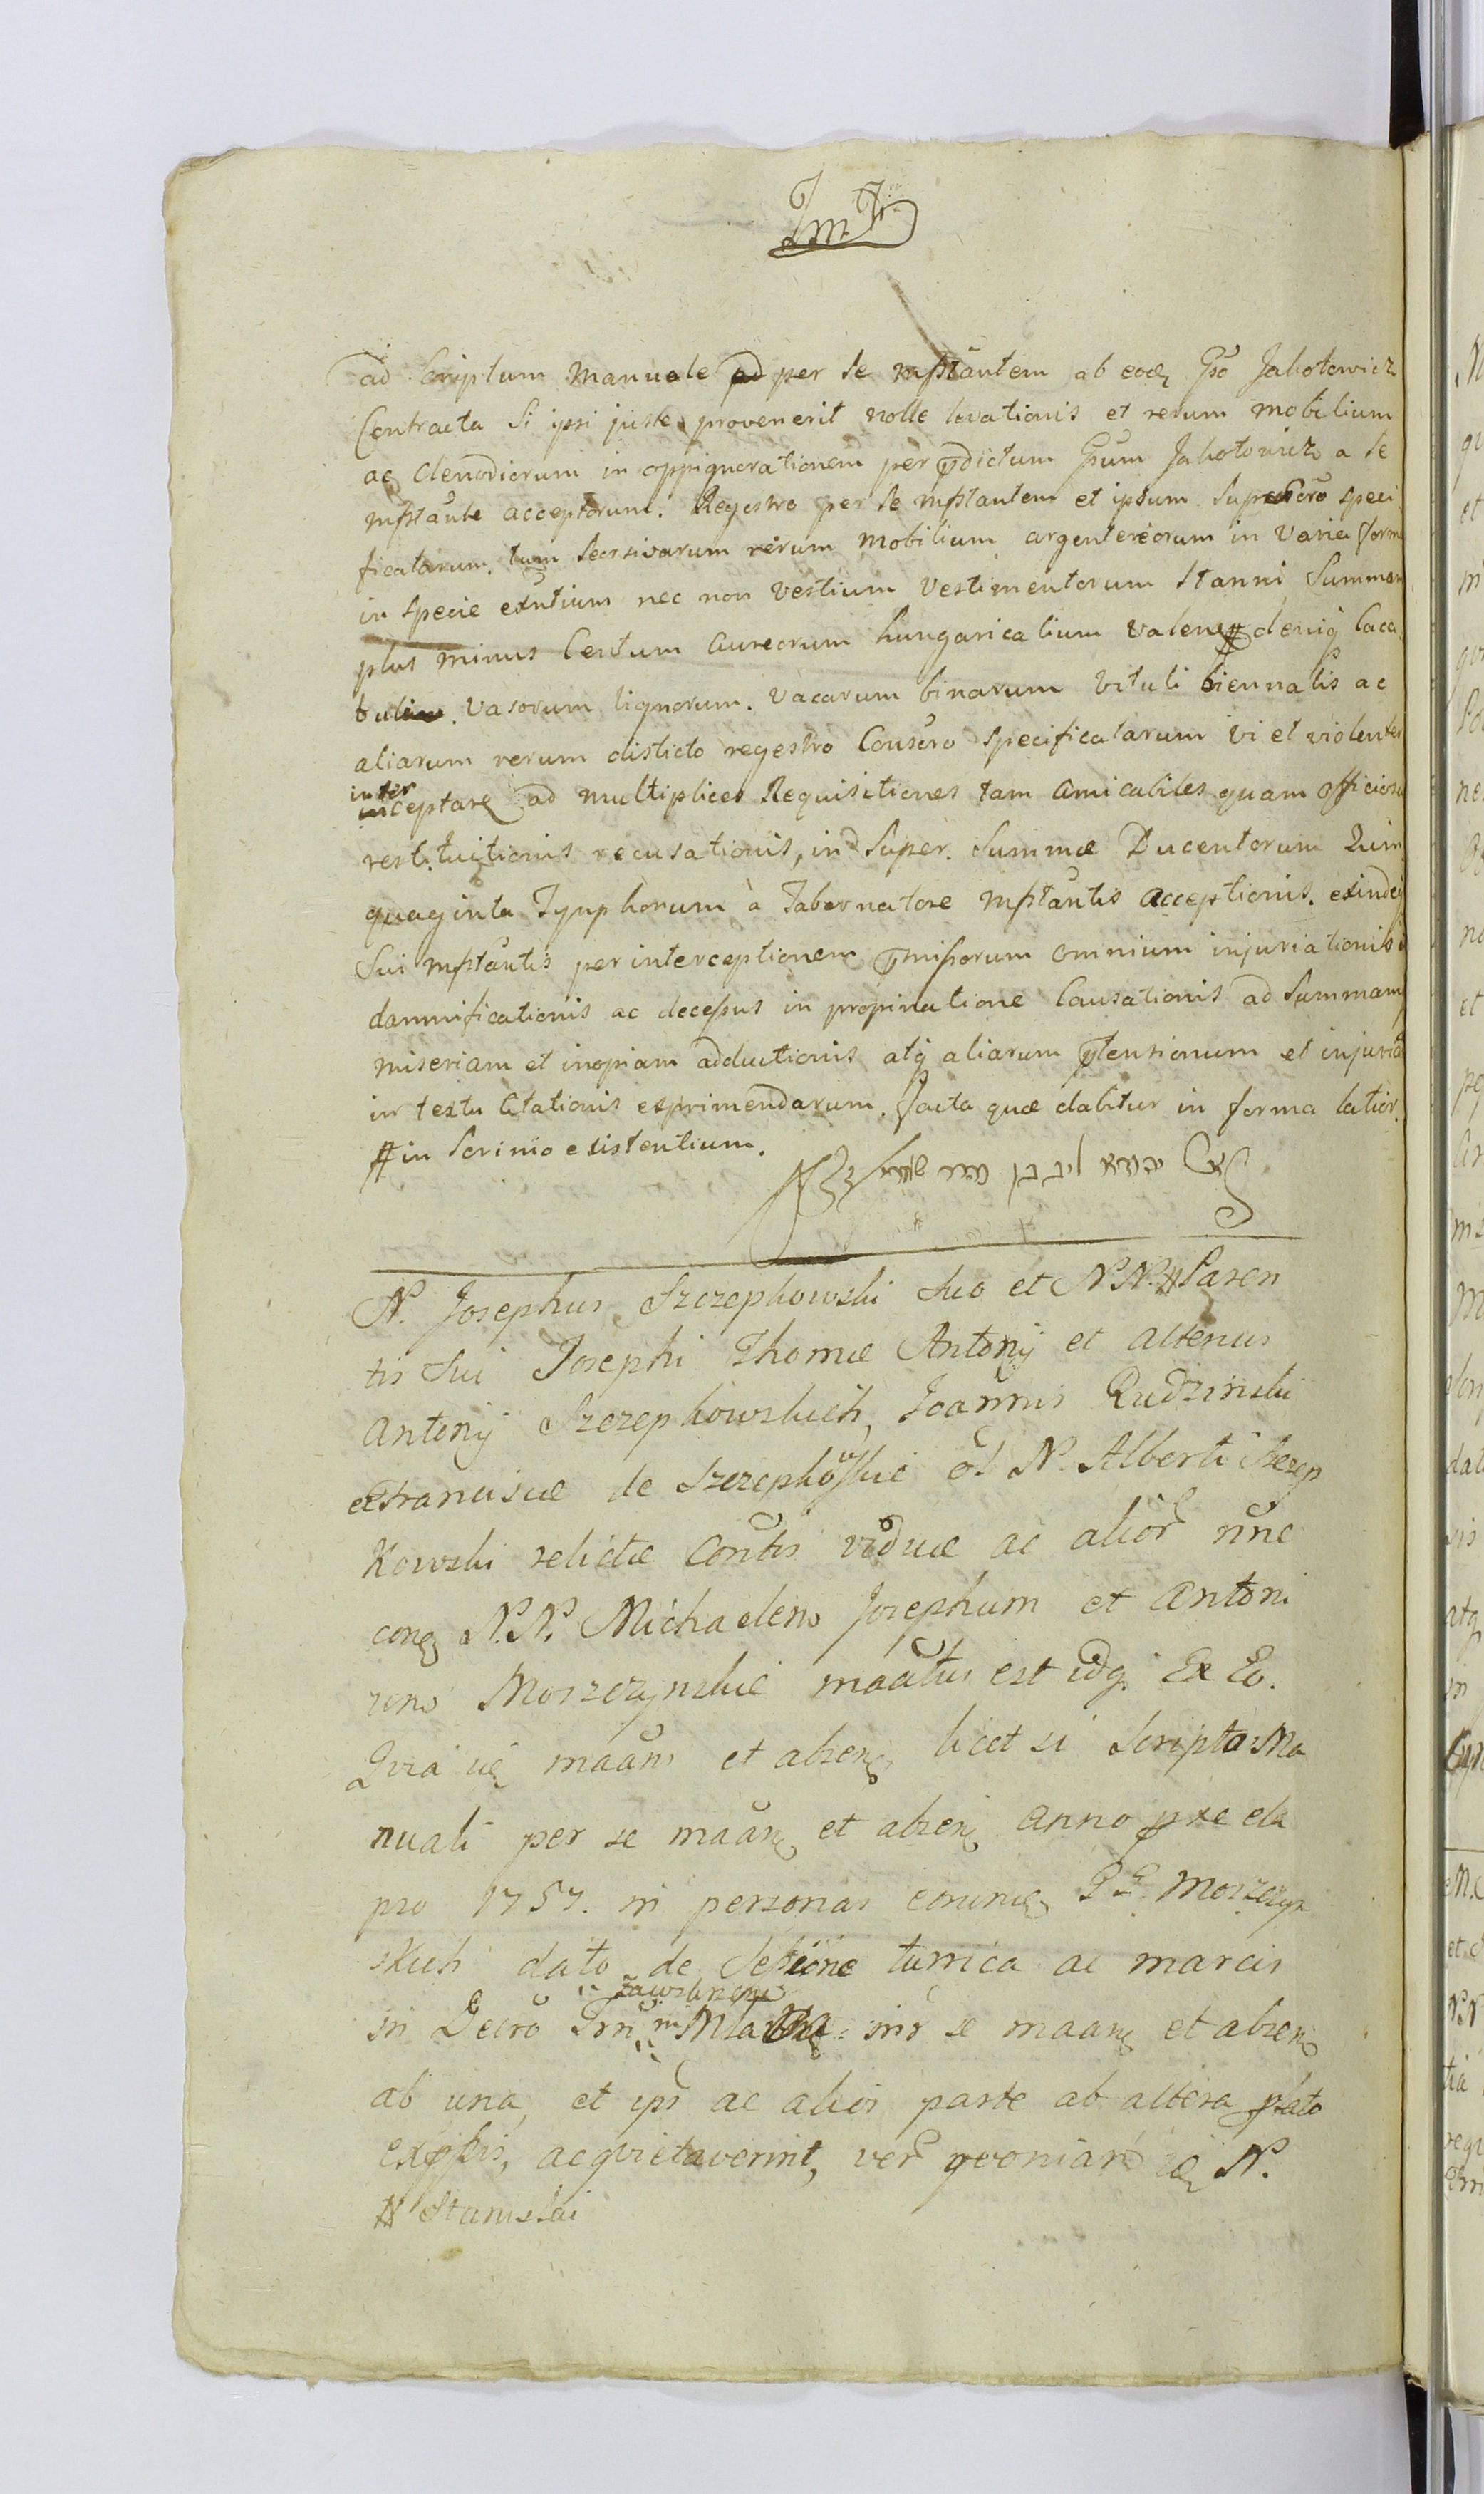 ImF
ad Scriptum Manuale per se instantem ab eodem Gso Jakotowicz
Contracta Si ipsi juste provenerit nolle levationis et rerum mobilium
ac clenodiorum in oppignorationem per pdictum Gsum Jakotowicz a se
instante acceptorum. Regestro per se instantem et ipsum speci
ficatarum, tum seorsivarum rerum mobilium argentereorum in varia form
in specie exntium nec non vestium vestimentorum Stanni Summam
plus minus Centum aureorum hungaricalium valen # deniq Caca
buli. vasorum lignorum. vacarum binarum vituli biennalis ac
aliarum rerum disticto regestro Conscro specificatarum vi et violenter
inter
ceptare ad multiplices Requisitiones tam amicabiles quam officiosa
restituitionis recusationis, ind super. Summæ Ducentorum Quin
quaginta Tynphorum à Tabernatore instantis acceptionis. exindeq
Sui instantis per interceptionem pmissorum omnium injuriationis
damnificationis ac decessus in propinatione Causationis ad Summam
miseriam et inopiam adductionis atq aliarum ptensionum et injuria
in textu Citationis exprimendarum. facta quæ dabitur in forma latior.
# in Scrinio existentium.
יהודא ליב בן
N. Josephus Szczepkowski Suo et N.N. # Paren
tis Sui Josephi Thomæ Antonij et alterius
Antonij Szczepkowskich, Joannis Rudzinski
et Franciscæ de Szczepkowskie ol N. Alberti Szczep
kowski relictæ Contis viduæ ac alior nne
con N.N. Michaelem Josephum et Antoni
um Moszczynskie maatus est idq Ex Eo.
Quia ii maans et absen licet si Scripto Ma
nuali per se maan et absen anno præ ela
pso 1757. in personas eorum GG. Moszczyn
skich dato de Sessione turrica ac marcis
in Decro Trni in Zawskrzen inr se maan et absen
ab una, et ips ac alios parte ab altera
, acquietaverint, ver quoniam ii N.
# Stanislai